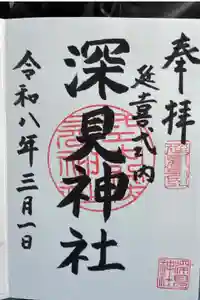 奉拝
延喜式之内
深見神社
令和八年三月一日